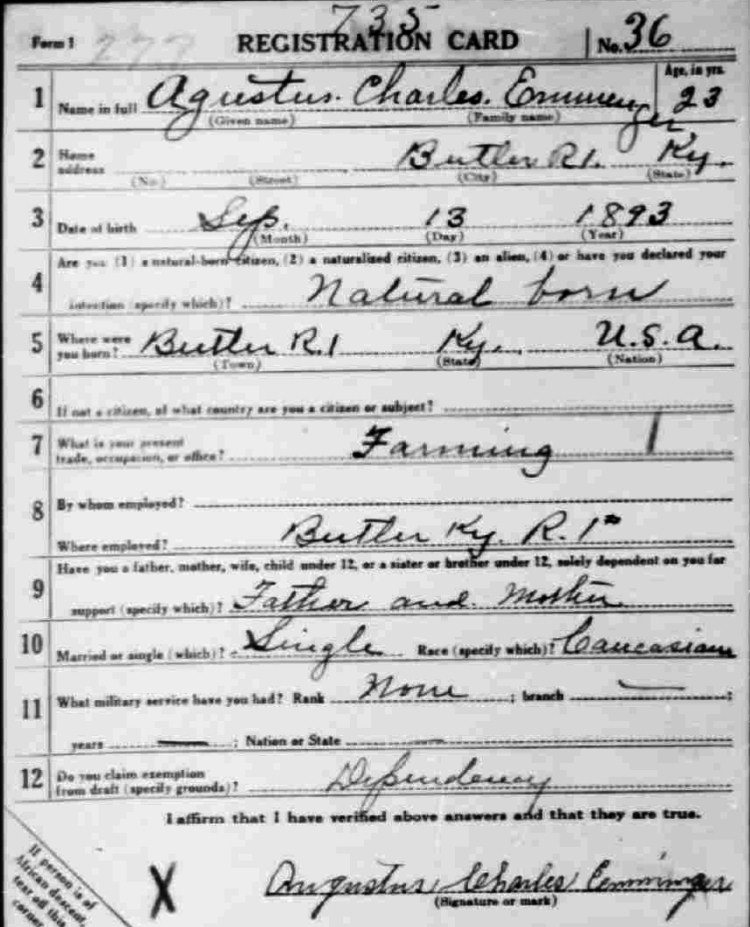 735
Form 1 277 REGISTRATION CARD No. 36
1 Name in full Agustus. Charles. Emmenger Age, in yrs. 23
(Given name) (Family name)
2 Home address Butler R1. Ky.
(No.) (Street) (City) (State)
3 Date of birth Sep. 13 1893
(Month) (Day) (Year)
Are you (1) a natural-born citizen, (2) a naturalized citizen, (3) an alien, (4) or have you declared your
4 intention (specify which)? Natural born
5 Where were you born? Butler R.1 Ky. U.S.A.
(Town) (State) (Nation)
6 If not a citizen, of what country are you a citizen or subject?
7 What is your present trade, occupation, or office? Farming
8 By whom employed?
Where employed? Butler Ky. R.1
9 Have you a father, mother, wife, child under 12, or a sister or brother under 12, solely dependent on you for
support (specify which)? Father and Mother
10 Married or single (which)? Single Race (specify which)? Caucasian
11 What military service have you had? Rank None ; branch — ;
years — ; Nation or State —
12 Do you claim exemption from draft (specify grounds)? Dependency
I affirm that I have verified above answers and that they are true.
If person is of
African descent,
tear off this
corner
X Augustus Charles Emminger
(Signature or mark)